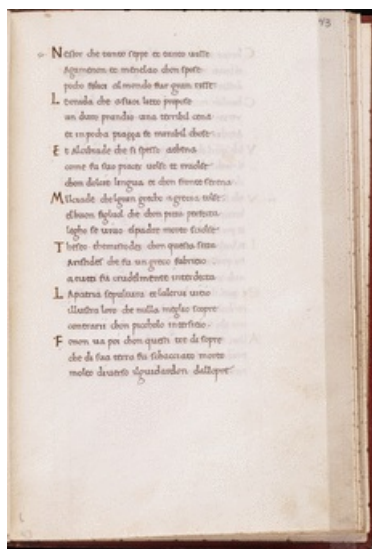 73
Nestor che tanto seppe et tanto uisse
Agamenon et menelao chen spose
pocho felici al mondo far gran risse
Leonida che asuoi lieto propose
un duro prandio una terribil cena
et in pocha piazza fe mirabil chose
Et Alcibiade che si spesso athena
come fu suo piacer uolse et riuolse
chon dolcie lingua et chon fronte serena
Milciade chelgran agrecia tolse
elbuon figliuol che chon pieta perfecta
legho se uiuo elpadre morto sciolse
Theseo themistodes chon questa setta
Aristides che fu un greco fabritio
a tutti fu crudelmente interdecta
La patria sepultura et laltrui uitio
illustra loro che nulla meglio scopre
contrarii chon picchiolo interstitio
Focion ua poi chon questi tre di sopre
che di sua terra fu schacciato morto
molto diuerso ilguidardon dallopre